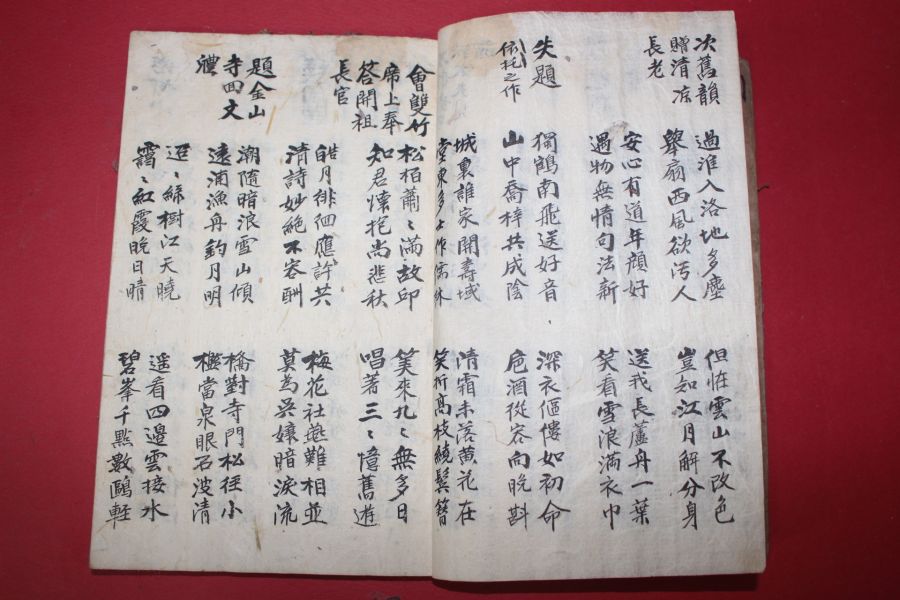 次舊韻
贈清凉
長老
過淮入洛地多塵
擧扇西風欲汚人
但怪雲山不改色
豈如江月解分身
安心有道年顔好
遇物無情句法新
送我長蘆舟一葉
笑看雪浪滿衣巾
失題
依托之作
獨鶴南飛送好音
山中喬梓共成陰
深衣傴僂如初命
巵酒從容向晚斟
城裏誰家開壽域
堂東多士作儒林
清霜未落黄花在
笑折高枝繞鬂簪
會雙竹
席上奉
答開祖
長官
松栢蕭〻滿故印
知君懷抱尚悲秋
笑來九〻無多日
唱著三〻憶舊遊
皓月徘徊應許共
清詩妙絶不容酬
梅花社燕難相並
莫為吳孃暗淚流
題金山
寺回文
禮
潮隨暗浪雪山傾
遠浦漁舟釣月明
橋對寺門松徑小
檻當泉眼石波清
迢〻綠樹江天曉
靄〻紅霞晚日晴
遥看四邊雲接水
碧峯千點數鷗輕